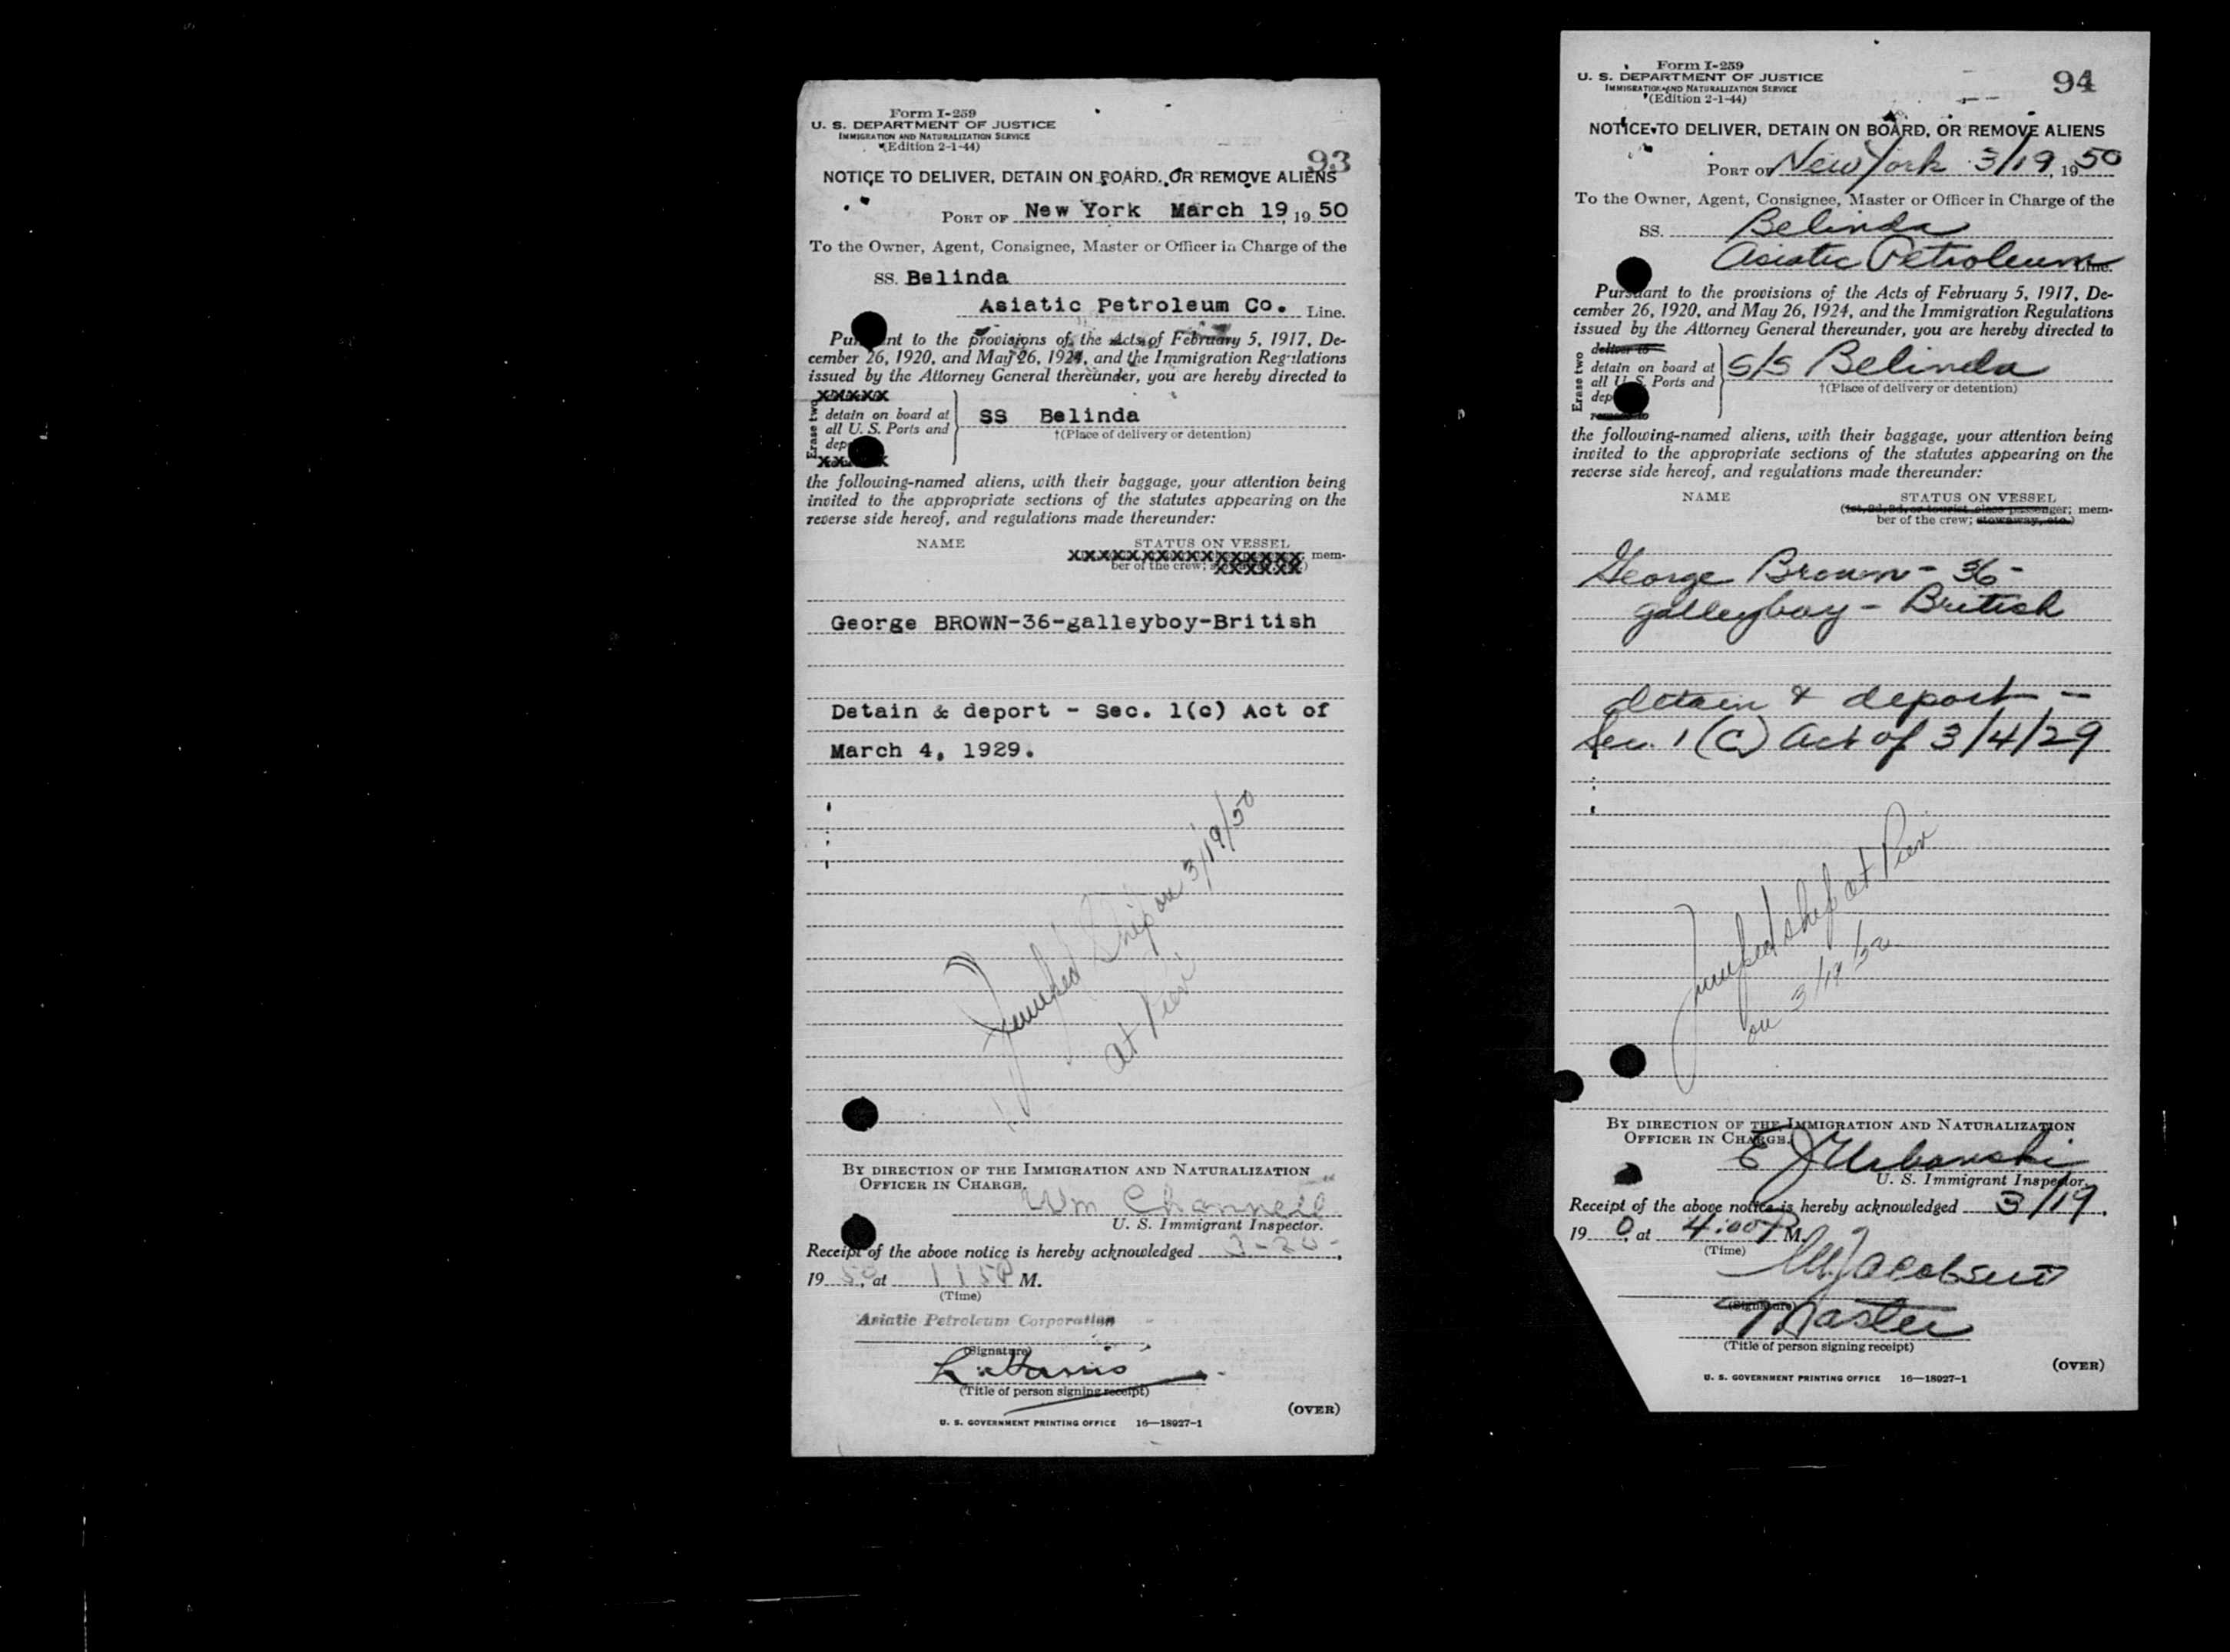 Form I-259
U. S. DEPARTMENT OF JUSTICE
IMMIGRATION AND NATURALIZATION SERVICE
(Edition 2-1-44)
93
NOTICE TO DELIVER, DETAIN ON BOARD, OR REMOVE ALIENS
PORT OF New York March 19, 19 50
To the Owner, Agent, Consignee, Master or Officer in Charge of the
SS. Belinda
Asiatic Petroleum Co. Line.
Pursuant to the provisions of the Acts of February 5, 1917, De-
cember 26, 1920, and May 26, 1924, and the Immigration Regulations
issued by the Attorney General thereunder, you are hereby directed to
XXXXX
Erase two
detain on board at
all U. S. Ports and
dep
SS Belinda
†(Place of delivery or detention)
the following-named aliens, with their baggage, your attention being
invited to the appropriate sections of the statutes appearing on the
reverse side hereof, and regulations made thereunder:
NAME STATUS ON VESSEL
XXXXXXXXXXXXXXXX; mem-
ber of the crew; XXXXXX)
George BROWN-36-galleyboy-British
Detain & deport - Sec. 1(c) Act of
March 4, 1929.
Jumped Ship on 3/19/50
at Pier
BY DIRECTION OF THE IMMIGRATION AND NATURALIZATION
OFFICER IN CHARGE.
Wm Channell
U. S. Immigrant Inspector.
Receipt of the above notice is hereby acknowledged 3-20-,
19 50, at 1 15P M.
(Time)
Asiatic Petroleum Corporation
(Signature)
L. Harris
(Title of person signing receipt)
(OVER)
U. S. GOVERNMENT PRINTING OFFICE 16—18927-1
Form I-259
U. S. DEPARTMENT OF JUSTICE
IMMIGRATION AND NATURALIZATION SERVICE
(Edition 2-1-44)
94
NOTICE TO DELIVER, DETAIN ON BOARD, OR REMOVE ALIENS
PORT OF New York 3/19, 19 50
To the Owner, Agent, Consignee, Master or Officer in Charge of the
SS. Belinda
Asiatic Petroleum Line.
Pursuant to the provisions of the Acts of February 5, 1917, De-
cember 26, 1920, and May 26, 1924, and the Immigration Regulations
issued by the Attorney General thereunder, you are hereby directed to
Erase two
deliver to
detain on board at
all U. S. Ports and
dep
remove to
S/S Belinda
†(Place of delivery or detention)
the following-named aliens, with their baggage, your attention being
invited to the appropriate sections of the statutes appearing on the
reverse side hereof, and regulations made thereunder:
NAME STATUS ON VESSEL
(1st, 2d, 3d, or tourist class passenger; mem-
ber of the crew; stowaway, etc.)
George Brown - 36 -
galleyboy - British
detain & deport -
Sec. 1 (C) Act of 3/4/29
Jumped ship at Pier
on 3/19/50
BY DIRECTION OF THE IMMIGRATION AND NATURALIZATION
OFFICER IN CHARGE.
E J Urbanski
U. S. Immigrant Inspector.
Receipt of the above notice is hereby acknowledged 3/19,
19 0, at 4:00 P M.
(Time)
Jacobsen
(Signature)
Master
(Title of person signing receipt)
(OVER)
U. S. GOVERNMENT PRINTING OFFICE 16—18927-1